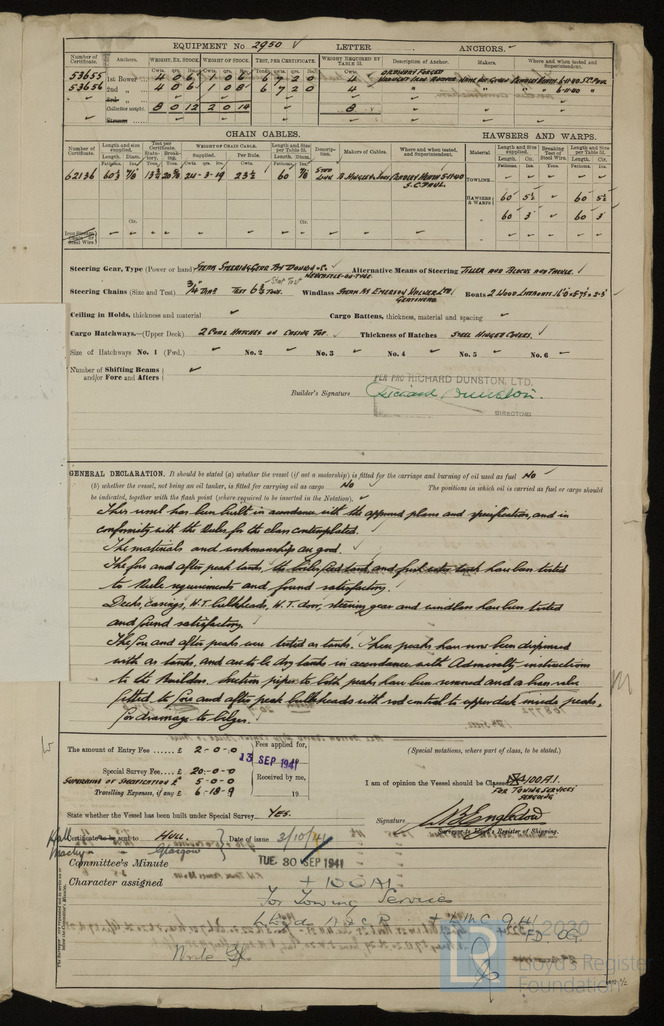 EQUIPMENT No. 2950 LETTER ANCHORS.
Number of Certificate. Anchors. WEIGHT, EX. STOCK. WEIGHT OF STOCK. TEST, PER CERTIFICATE. WEIGHT REQUIRED BY TABLE 31. Description of Anchor. Makers. Where and when tested and Superintendent.
53655 1st Bower 4 0 6 1 0 6 6 7 2 0
53656 2nd " 4 0 6 1 0 8 6 7 2 0 4 " " " 6-11-40 "
Collective weight. 8 0 12 2 0 14 8
CHAIN CABLES. HAWSERS AND WARPS.
Number of Certificate. Length and size supplied. Test per Certificate. WEIGHT OF CHAIN CABLE. Length and Size per Table 31. Description. Makers of Cables. Where and when tested, and Superintendent. Material Length and Size supplied. Breaking Test of Steel Wire. Length and Size per Table 31.
Supplied. Per Rule.
62136 60 7/8 24-3-19 23½ 60 7/8 STUD LINK CRADLEY HEATH 5-11-40 S.C. PAUL.
TOWLINE
HAWSERS & WARPS 60 5½ 60 5½
60 3 60 3
Steering Gear, Type (Power or hand) STEAM STEERING GEAR NEWCASTLE-ON-TYNE Alternative Means of Steering TILLER AND BLOCKS AND TACKLE.
Steering Chains (Size and Test) TEST 6¾ TONS Windlass STEAM BY EMERSON WALKER LTD. Boats 2 WOOD LIFEBOATS
Ceiling in Holds, thickness and material Cargo Battens, thickness, material and spacing
Cargo Hatchways.—(Upper Deck) 2 COAL HATCHES ON CASING TOP Thickness of Hatches STEEL HINGED COVERS.
Size of Hatchways No. 1 (Fwd.) No. 2 No. 3 No. 4 No. 5 No. 6
Number of Shifting Beams and/or Fore and Afters
PER PRO RICHARD DUNSTON, LTD.
Builder's Signature Richard Dunston.
DIRECTORS
GENERAL DECLARATION. It should be stated (a) whether the vessel (if not a motorship) is fitted for the carriage and burning of oil used as fuel NO
(b) whether the vessel, not being an oil tanker, is fitted for carrying oil as cargo NO The positions in which oil is carried as fuel or cargo should
be indicated, together with the flash point (where required to be inserted in the Notation).
This vessel has been built in accordance with the approved plans and specification, and in
conformity with the Rules for the class contemplated.
The materials and workmanship are good.
The fore and after peak tanks, the boiler feed tank and fresh water tank have been tested
to Rule requirements and found satisfactory.
Decks, casings, W.T. bulkheads, W.T. door, steering gear and windlass have been tested
and found satisfactory.
The fore and after peaks were tested as tanks. These peaks have now been dispensed
with as tanks, and are to be dry tanks in accordance with Admiralty instructions
to the Builders. Suction pipes to both peaks have been removed and a valve
fitted to fore and after peak bulkheads with rod control to upper deck inside peaks,
for drainage to bilges.
The amount of Entry Fee £ 2-0-0 Fees applied for, 13 SEP 1941 (Special notations, where part of class, to be stated.)
Special Survey Fee £ 20-0-0
SUPERVISION OF SPECIFICATION £ 5-0-0 Received by me, I am of opinion the Vessel should be Classed 100A1.
Travelling Expenses, if any £ 6-18-9 19 FOR TOWING SERVICES
State whether the Vessel has been built under Special Survey YES. Signature
Surveyor to Lloyd's Register of Shipping.
Certificate to be sent to HULL. Date of issue 3/10/41
Glasgow
Committee's Minute TUE 30 SEP 1941
Character assigned + 100A1
For Towing Services
+ LMC 9.41
FD CG
Write
© 2020
LR Lloyd's Register Foundation